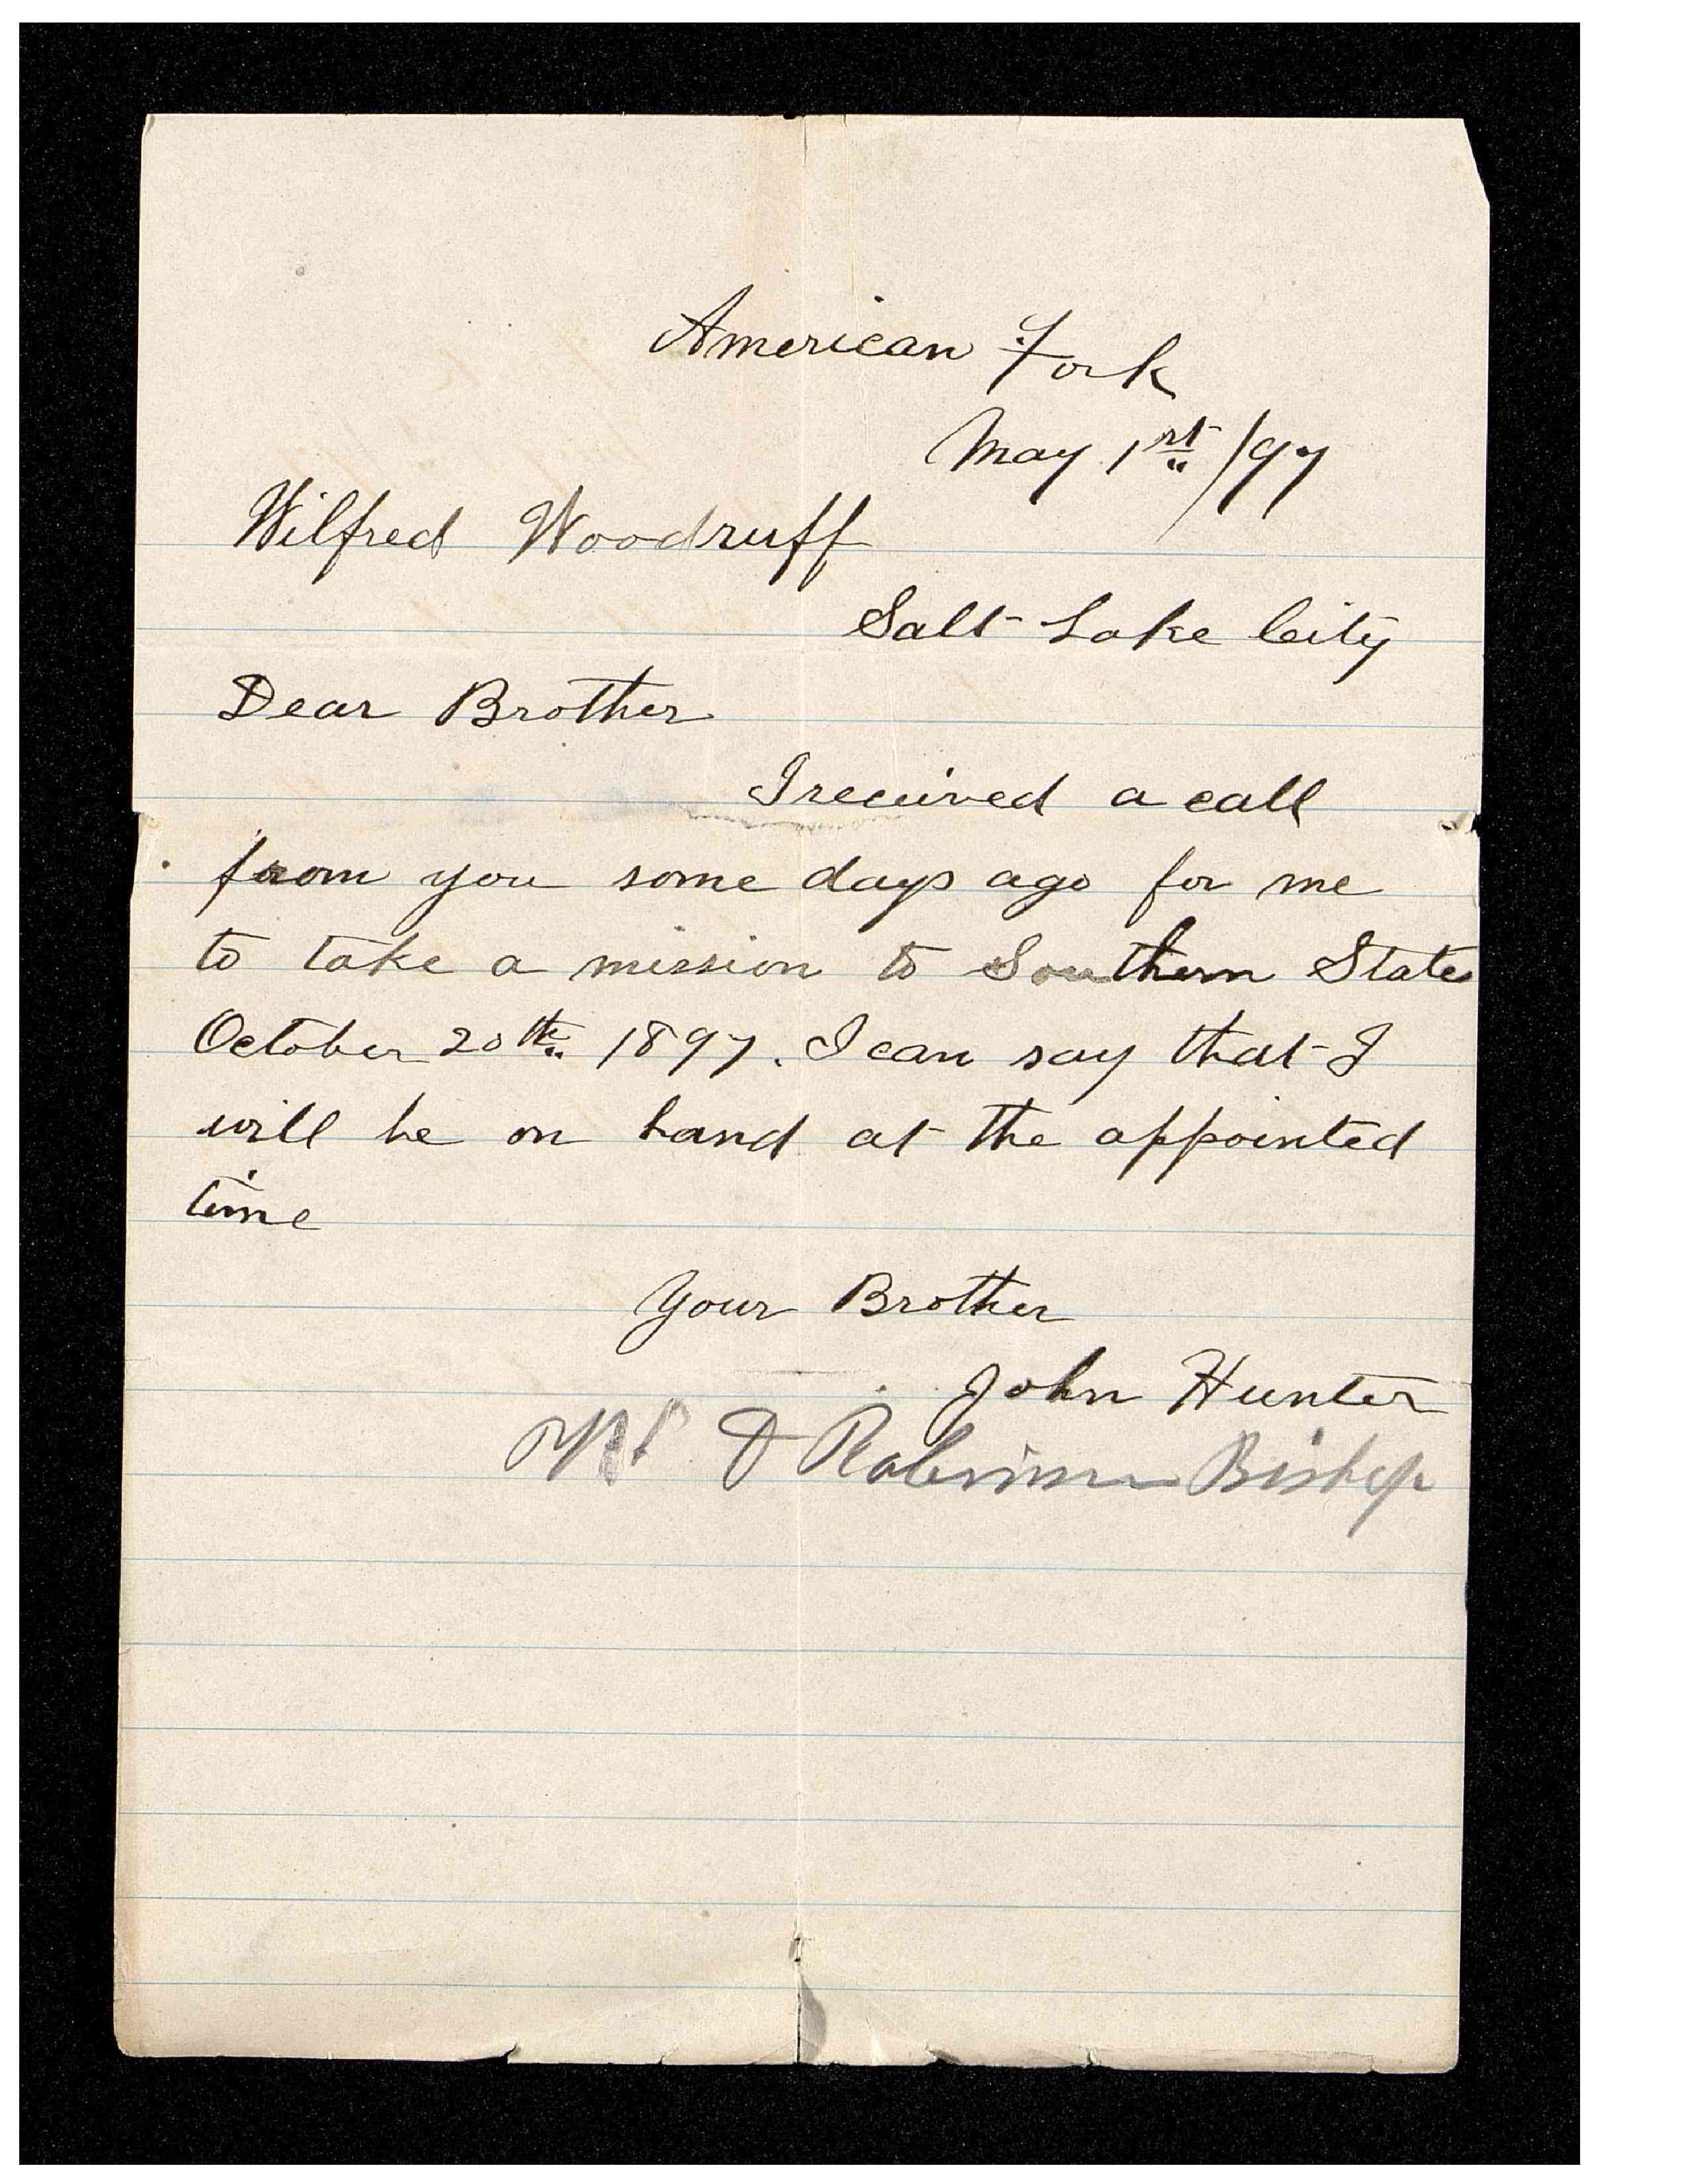 American Fork
May 1st /97
Wilfred Woodruff
Salt Lake City
Dear Brother
I recieved a call
from you some days ago for me
to take a mission to Southern States
October 20th 1897. I can say that I
will be on hand at the appointed
time
Your Brother
John Hunter
D Robinson Bishop